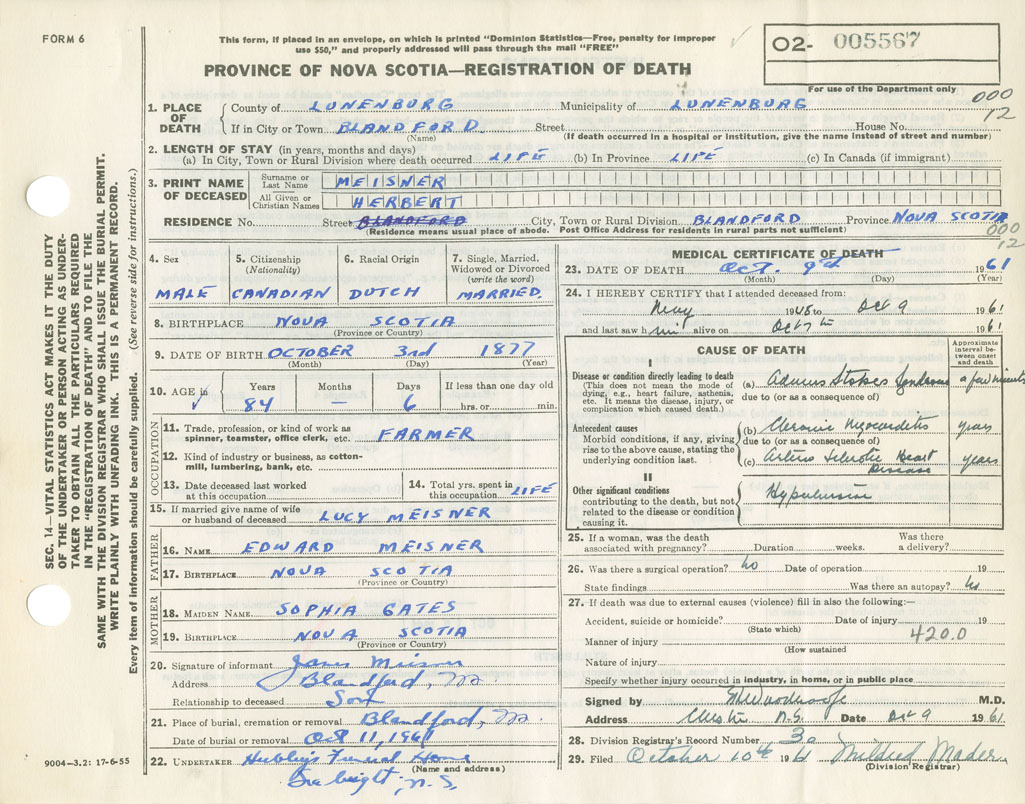 FORM 6
This form, if placed in an envelope, on which is printed "Dominion Statistics—Free, penalty for improper
use $50," and properly addressed will pass through the mail "FREE"
PROVINCE OF NOVA SCOTIA—REGISTRATION OF DEATH
O2- 005567
For use of the Department only
000
12
SEC. 14—VITAL STATISTICS ACT MAKES IT THE DUTY
OF THE UNDERTAKER OR PERSON ACTING AS UNDER-
TAKER TO OBTAIN ALL THE PARTICULARS REQUIRED
IN THE "REGISTRATION OF DEATH" AND TO FILE THE
SAME WITH THE DIVISION REGISTRAR WHO SHALL ISSUE THE BURIAL PERMIT.
WRITE PLAINLY WITH UNFADING INK. THIS IS A PERMANENT RECORD.
Every item of information should be carefully supplied. (See reverse side for instructions.)
1. PLACE OF DEATH County of LUNENBURG Municipality of LUNENBURG
If in City or Town BLANDFORD Street House No.
(Name) (If death occurred in a hospital or institution, give the name instead of street and number)
2. LENGTH OF STAY (in years, months and days)
(a) In City, Town or Rural Division where death occurred LIFE (b) In Province LIFE (c) In Canada (if immigrant)
3. PRINT NAME OF DECEASED Surname or Last Name MEISNER
All Given or Christian Names HERBERT
RESIDENCE No. Street BLANDFORD City, Town or Rural Division BLANDFORD Province NOVA SCOTIA
(Residence means usual place of abode. Post Office Address for residents in rural parts not sufficient)
000
12
4. Sex
MALE
5. Citizenship
(Nationality)
CANADIAN
6. Racial Origin
DUTCH
7. Single, Married,
Widowed or Divorced
(write the word)
MARRIED.
8. BIRTHPLACE NOVA SCOTIA
(Province or Country)
9. DATE OF BIRTH OCTOBER 3rd 1877
(Month) (Day) (Year)
10. AGE in Years Months Days If less than one day old
84 — 6 hrs. or min.
OCCUPATION
11. Trade, profession, or kind of work as
spinner, teamster, office clerk, etc. FARMER
12. Kind of industry or business, as cotton-
mill, lumbering, bank, etc.
13. Date deceased last worked
at this occupation
14. Total yrs. spent in
this occupation LIFE
15. If married give name of wife
or husband of deceased LUCY MEISNER
FATHER
16. NAME EDWARD MEISNER
17. BIRTHPLACE NOVA SCOTIA
(Province or Country)
MOTHER
18. MAIDEN NAME SOPHIA GATES
19. BIRTHPLACE NOVA SCOTIA
(Province or Country)
20. Signature of informant James Meisner
Address Blandford,
Relationship to deceased Son
21. Place of burial, cremation or removal Blandford,
Date of burial or removal Oct 11, 1961
22. UNDERTAKER Hubley's Funeral Home
(Name and address)
N.S.
9004—3.2: 17-6-55
MEDICAL CERTIFICATE OF DEATH
23. DATE OF DEATH Oct. 9th 1961
(Month) (Day) (Year)
24. I HEREBY CERTIFY that I attended deceased from:
May 1948 to Oct 9 1961
and last saw him alive on Oct 7th 1961
CAUSE OF DEATH
Approximate
interval be-
tween onset
and death
I
Disease or condition directly leading to death
(This does not mean the mode of
dying, e.g., heart failure, asthenia,
etc. It means the disease, injury, or
complication which caused death.)
(a) Adams Stokes Syndrome a few minutes
due to (or as a consequence of)
Antecedent causes
Morbid conditions, if any, giving
rise to the above cause, stating the
underlying condition last.
(b) Chronic Myocarditis years
due to (or as a consequence of)
(c) Arterio Sclerotic Heart years
Disease
II
Other significant conditions
contributing to the death, but not
related to the disease or condition
causing it.
Hypertension
25. If a woman, was the death
associated with pregnancy? Duration weeks.
Was there
a delivery?
26. Was there a surgical operation? No Date of operation 19
State findings Was there an autopsy? No
27. If death was due to external causes (violence) fill in also the following:—
Accident, suicide or homicide? Date of injury 19
(State which)
420.0
Manner of injury
(How sustained
Nature of injury
Specify whether injury occurred in industry, in home, or in public place
Signed by M.D.
Address Chester N.S. Date Oct 9 1961
28. Division Registrar's Record Number 30
29. Filed October 10th 1961 Mildred Mader
(Division Registrar)